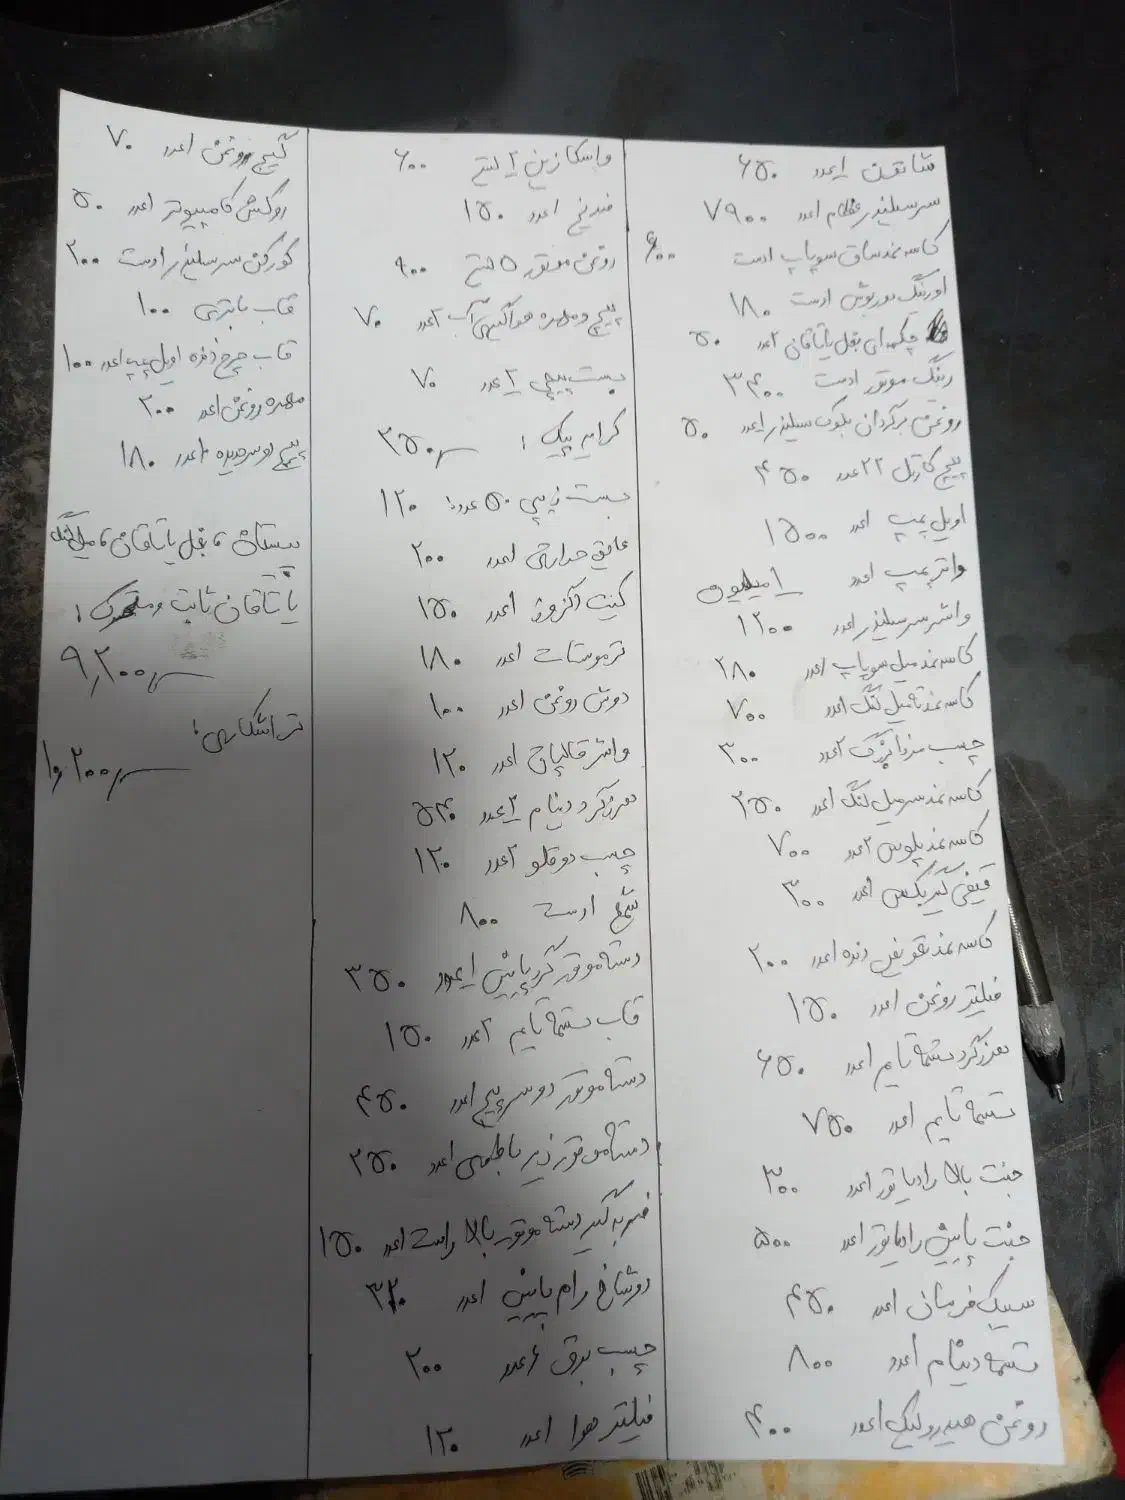 شاتون ۱عدد ۶۵۰
سرسیلندر عظام ۱عدد ۷۹۰۰
کاسه نمد ساق سوپاپ ۱دست ۶۰۰
اورینگ بوربوش ۱دست ۱۸۰
چکمه‌ای بغل یاتاقان ۲عدد ۵۰
رینگ موتور ۱دست ۳۴۰۰
روغن برگردان بلوک سیلندر ۱عدد ۵۰
پیچ کارتل ۲۲عدد ۴۵۰
اویل پمپ ۱عدد ۱۵۰۰
واتر پمپ ۱عدد ۱میلیون
واشر سرسیلندر ۱عدد ۱۲۰۰
کاسه نمد میل سوپاپ ۱عدد ۲۸۰
کاسه نمد ته میل لنگ ۱عدد ۷۰۰
چسب مزدا بزرگ ۲عدد ۳۰۰
کاسه نمد سرمیل لنگ ۱عدد ۲۵۰
کاسه نمد پلوس ۲عدد ۷۰۰
قیفی گیربکس ۱عدد ۳۰۰
کاسه نمد تعویض دنده ۱عدد ۲۰۰
فیلتر روغن ۱عدد ۱۵۰
هرزگرد تسمه تایم ۱عدد ۶۵۰
تسمه تایم ۱عدد ۷۵۰
جنت بالا رادیاتور ۱عدد ۳۰۰
جنت پایین رادیاتور ۱عدد ۵۰۰
سیبک فرمان ۱عدد ۴۵۰
تسمه دینام ۱عدد ۸۰۰
روغن هیدرولیک ۱عدد ۴۰۰
واسکازین ۲ لیتر ۶۰۰
ضدیخ ۱عدد ۱۵۰
روغن موتور ۵ لیتر ۹۰۰
پیچ و مهره هواگیری آب ۲عدد ۷۰
بست پیچی ۲عدد ۷۰
کرایه پیک : ۳۵۰
بست زیپی ۵۰ عدد: ۱۲۰
عایق حرارتی ۱عدد ۲۰۰
کیت اگزوز ۱عدد ۱۵۰
ترموستات ۱عدد ۱۸۰
دوش روغن ۱عدد ۱۰۰
واشر قالپاق ۱عدد ۱۲۰
هرزگرد دینام ۲عدد ۵۴۰
چسب دوقلو ۲عدد ۱۲۰
شمع ۱دست ۸۰۰
دسته موتور گرد پایین ۱عدد ۳۵۰
قاب تسمه تایم ۲عدد ۱۵۰
دسته موتور دو سر پیچ ۱عدد ۴۵۰
دسته موتور زیر باطری ۱عدد ۲۵۰
ضربه گیر دسته موتور بالا راست ۱عدد ۱۵۰
دوشاخ رام پایین ۱عدد ۳۲۰
چسب برق ۴عدد ۲۰۰
فیلتر هوا ۱عدد ۱۲۰
گیج روغن ۱عدد ۷۰
روکش کامپیوتر ۱عدد ۵۰
کورکن سرسیلندر ۱دست ۲۰۰
قاب باتری ۱۰۰
قاب چرخ دنده اویل پمپ ۱عدد ۱۰۰
مهره روغن ۱عدد ۲۰۰
پیچ ۱۸۰
پیستون ، بغل یاتاقان ، میل لنگ
یاتاقان ثابت و متحرک :
۹,۲۰۰
تراشکاری :
۱۰,۲۰۰